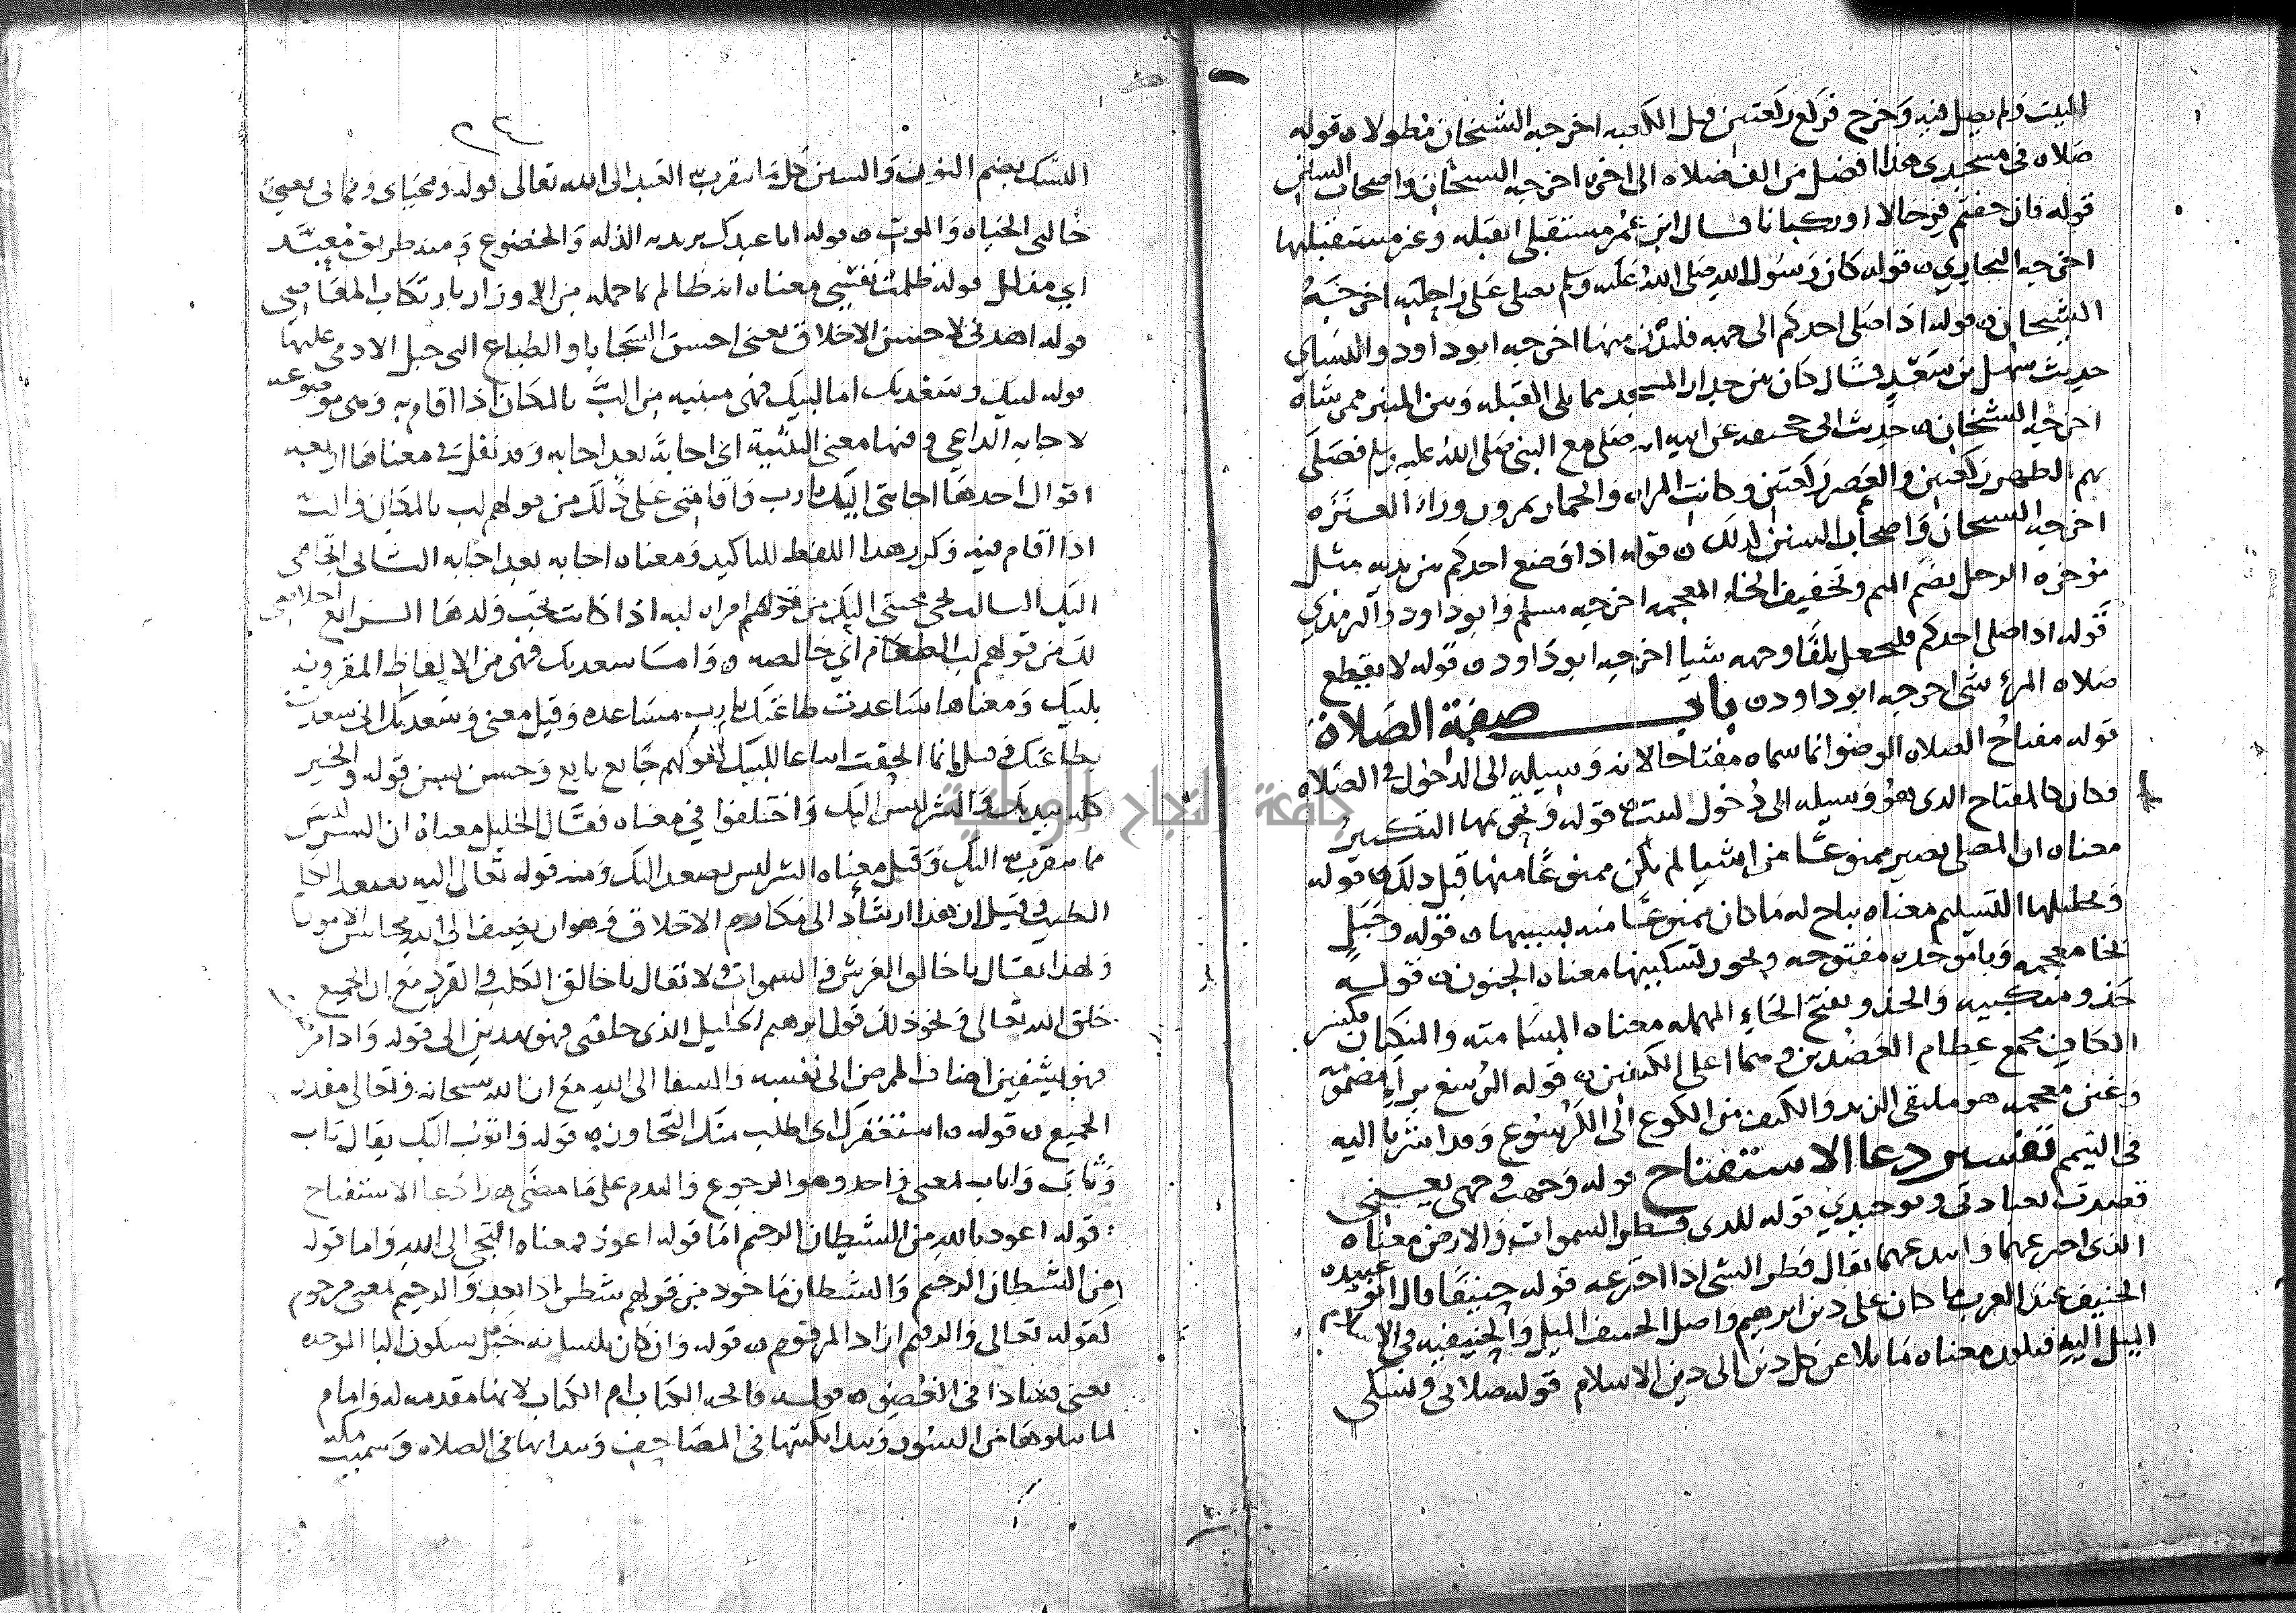 البيت ولم يصل فيه وخرج فركع ركعتين قبل الكعبه اخرجه الشيخان مطولا ه قوله
صلاه في مسجدي هذا افضل من الف صلاه الى اخره اخرجه الشيخان واصحاب السنن
قوله فان خفتم فرجالا او ركبانا قال ابن عمر مستقبلي القبله وغير مستقبليها
اخرجه البخاري ه قوله كان رسول الله صلى الله عليه وسلم يصلي على راحلته اخرجه
الشيخان ه قوله اذا صلى احدكم الى جهه فليدن منها اخرجه ابو داود والنساي
حديث سهل بن سعد قال كان بين جدار المسجد مما يلي القبله وبين المنبر ممر شاه
اخرجه الشيخان ه حديث ابي جحيفه عن ابيه انه صلى مع النبي صلى الله عليه وسلم فصلى
بهم الظهر ركعتين والعصر ركعتين وكانت المراه والحمار يمرون وراء العنزه
اخرجه الشيخان واصحاب السنن كذلك ه قوله اذا وضع احدكم بين يديه مثل
موخره الرحل بضم الميم وتخفيف الخاء المعجمه اخرجه مسلم وابو داود والترمذي
قوله اذا صلى احدكم فليجعل تلقا وجهه شيا اخرجه ابو داود ه قوله لا يقطع
صلاه المرء شي اخرجه ابو داود ه باب صفة الصلاة
قوله مفتاح الصلاه الوضوء انما سماه مفتاحا لانه وسيله الى الدخول في الصلاه
فكان كالمفتاح الذي هو وسيله الى دخول البيت ه قوله وتحريمها التكبير
معناه ان المصلي يصير ممنوعا من اشيا لم يكن ممنوعا منها قبل ذلك ه قوله
وتحليلها التسليم معناه يباح له ما كان ممنوعا منه بسببها ه قوله وخبل
بخا معجمه وبا موحده مفتوحه ويجوز تسكينها معناه الجنون ه قوله
حذو منكبيه والحذو بفتح الحاء المهمله معناه المسامته والمنكبان بكسر
الكاف مجمع عظام العضدين وهما اعلى الكتفين ه قوله الرسغ براء مضمومة
وغين معجمه هو ملتقى الزند والكف من الكوع الى الكرسوع وقد اشرنا اليه
في التيمم تفسير دعا الاستفتاح قوله وجهت وجهي يعني
قصدت بعبادتي وتوحيدي قوله للذي فطر السموات والارض معناه
الذي اخترعهما وابتدعهما يقال فطر الشي اذا اخترعه قوله حنيفا قال ابو عبيده
الحنيف عند العرب ما كان على دين ابرهيم واصل الحنف الميل والحنيفيه في الاسلام
الميل اليه فيكون معناه مايلا عن كل دين الى دين الاسلام قوله صلاتي ونسكي
النسك بضم النون والسين كل ما يتقرب به العبد الى الله تعالى قوله ومحياي ومماتي يعني
خالق الحياه والموت ه قوله انا عبدك يريد به الذله والخضوع ومنه طريق معبد
اي مذلل قوله ظلمت نفسي معناه انه ظالم بما حمله من الاوزار بارتكاب المعاصي
قوله اهدني لاحسن الاخلاق يعني احسن السجايا والطباع التي جبل الادمي عليها
قوله لبيك وسعديك اما لبيك فهي مبنيه من الب بالمكان اذا اقام به وهي موضوعه
لاجابه الداعي وفيها معنى التثنية اي اجابة بعد اجابه وقد نقل في معناها اربعه
اقوال احدها اجابتي اليك يا رب واقامتي على ذلك من قولهم لب بالمكان والب
اذا اقام فيه وكرر هذا اللفظ للتاكيد ومعناه اجابه بعد اجابه الثاني اتجاهي
اليك الثالث محبتي اليك من قولهم امراه لبه اذا كانت تحب ولدها الرابع اخلاصي
لك من قولهم لب الطعام اي خالصه ه واما سعديك فهي من الالفاظ المقرونه
بلبيك ومعناها ساعدت طاعتك يا رب مساعده وقيل معنى وسعديك اني سعدت
بطاعتك وقيل انما الحقت اتباعا للبيك كقولهم جايع نايع وحسن بسن قوله والخير
كله بيديك والشر ليس اليك واختلفوا في معناه فقال الخليل معناه ان الشر ليس
مما يتقرب به اليك وقيل معناه الشر ليس يصعد اليك ومنه قوله تعالى اليه يصعد الكلم
الطيب وقيل ان هذا ارشاد الى مكارم الاخلاق وهو ان يضيف الى الله محاسن الامور
ولهذا يقال يا خالق العرش والسموات ولا يقال يا خالق الكلب والقرد مع ان الجميع
خلق الله تعالى ونحو ذلك قول ابرهيم الخليل الذي خلقني فهو يهدين الى قوله واذا مرضت
فهو يشفين اضاف المرض الى نفسه والشفا الى الله مع ان الله سبحانه وتعالى مقدر
الجميع ه قوله ه استغفرك اي اطلب منك التجاوز ه قوله واتوب اليك يقال تاب
وثاب واناب بمعنى واحد وهو الرجوع والندم على ما مضى هذا دعا الاستفتاح
قوله اعوذ بالله من الشيطان الرجيم اما قوله اعوذ فمعناه التجي الى الله واما قوله
من الشيطان الرجيم والشيطان ماخوذ من قولهم شطن اذا بعد والرجيم بمعنى مرجوم
كقوله تعالى والرقيم اراد المرقوم ه قوله وان كان بلسانه خبل بسكون البا الموحده
يعني فسادا في الغصون ه قوله فاتحه الكتاب ام الكتاب لانها مقدمه له وامام
لما يتلوها من السور ويبدا بكتبتها في المصاحف ويبدا بها في الصلاه وسميت مكة
جامعة النجاح الوطنية